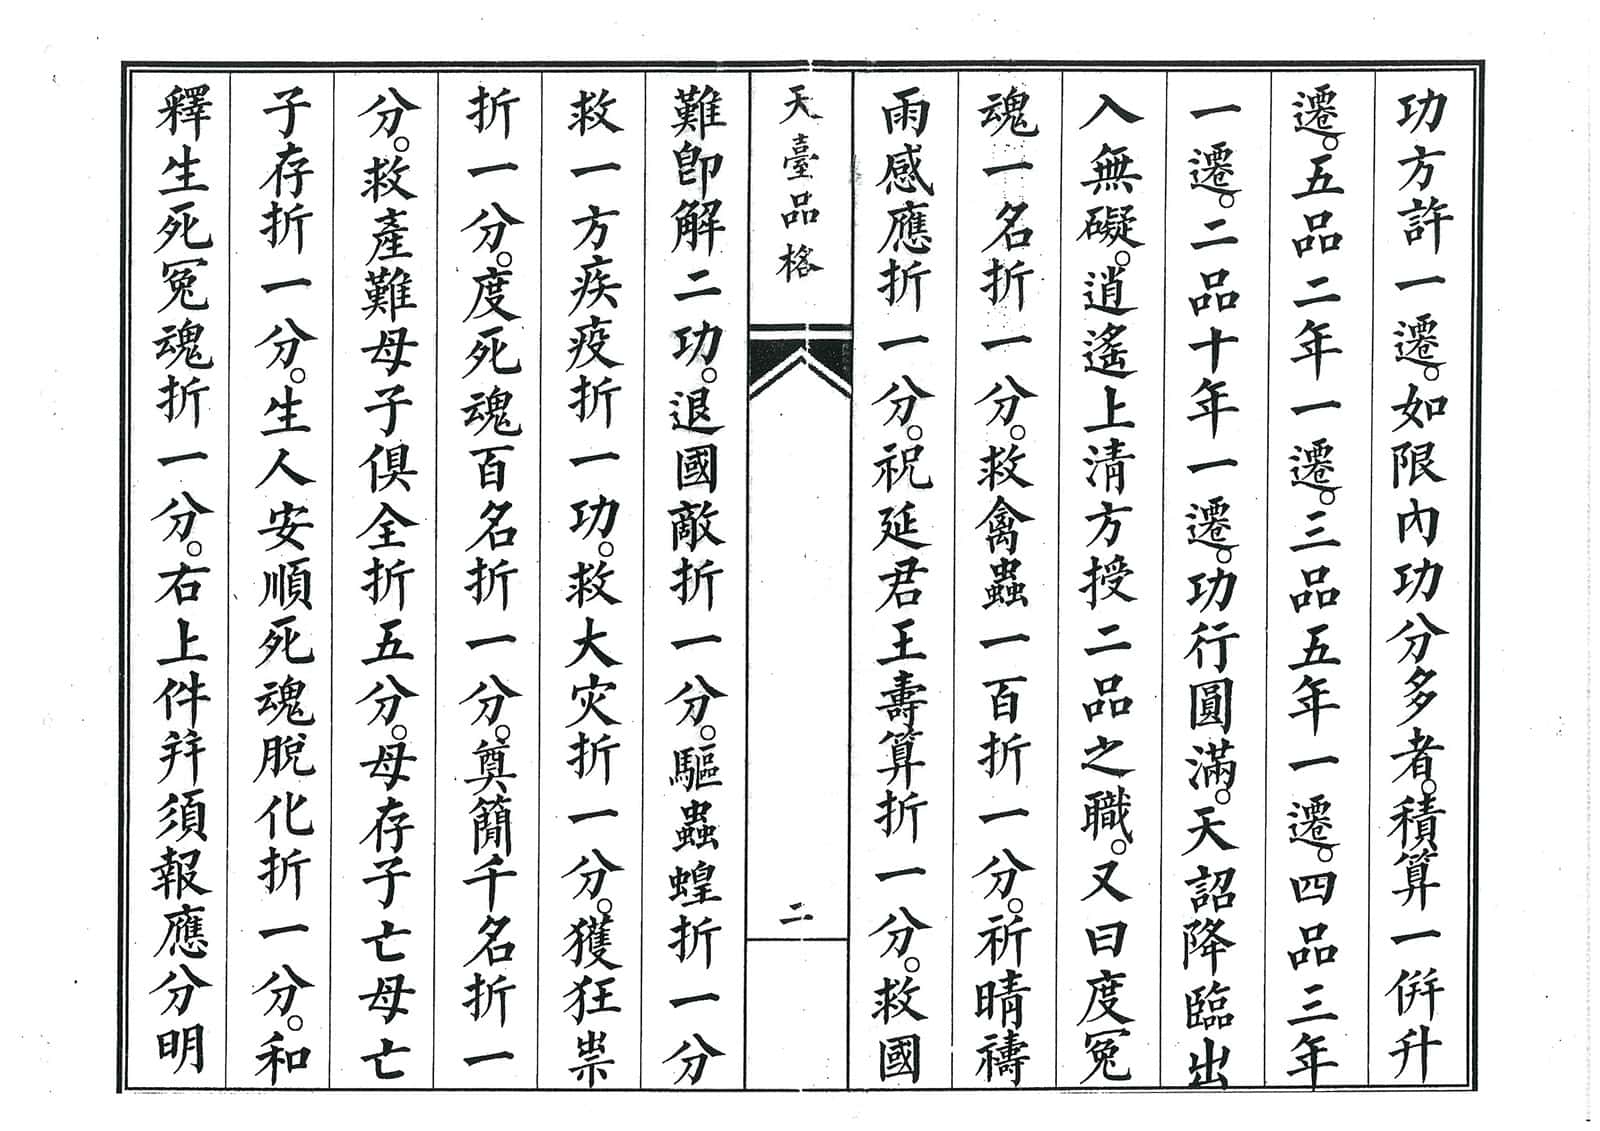 功方許一遷。如限內功分多者。積算一併升
遷。五品二年一遷。三品五年一遷。四品三年
一遷。二品十年一遷。功行圓滿。天詔降臨出
入無礙。逍遙上清方授二品之職。又曰度冤
魂一名折一分。救禽蟲一百折一分。祈晴禱
雨感應折一分。祝延君王壽算折一分。救國
天臺品格
二
難卽解二功。退國敵折一分。驅蟲蝗折一分
救一方疾疫折一功。救大灾折一分。獲狂祟
折一分。度死魂百名折一分。奠簡千名折一
分。救產難母子俱全折五分。母存子亡母亡
子存折一分。生人安順死魂脫化折一分。和
釋生死冤魂折一分。右上件幷須報應分明